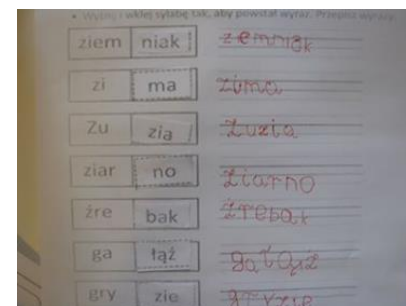 • Wytnij i wklej sylabę tak, aby powstał wyraz. Przepisz wyrazy.
ziem niak zemniak
zi ma zima
Zu zia Zuzia
ziar no ziarno
źre bak źrebak
ga łąź gałąź
gry zie gryzie